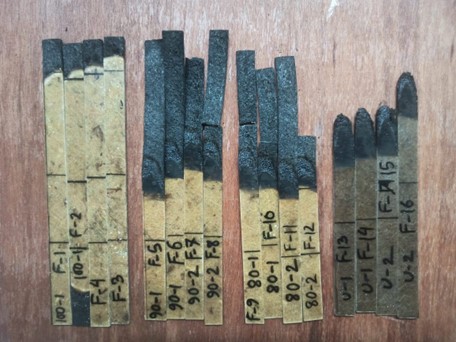 100-1 F-1
100-1 F-2
F-4
F-3
90-1 F-5
90-1 F-6
90-2 F-7
90-2 F-8
F-9 80-1
80-1 F-10
80-2 F-11
80-2 F-12
U-1 F-13
U-1 F-14
U-2 F-15
U-2 F-16